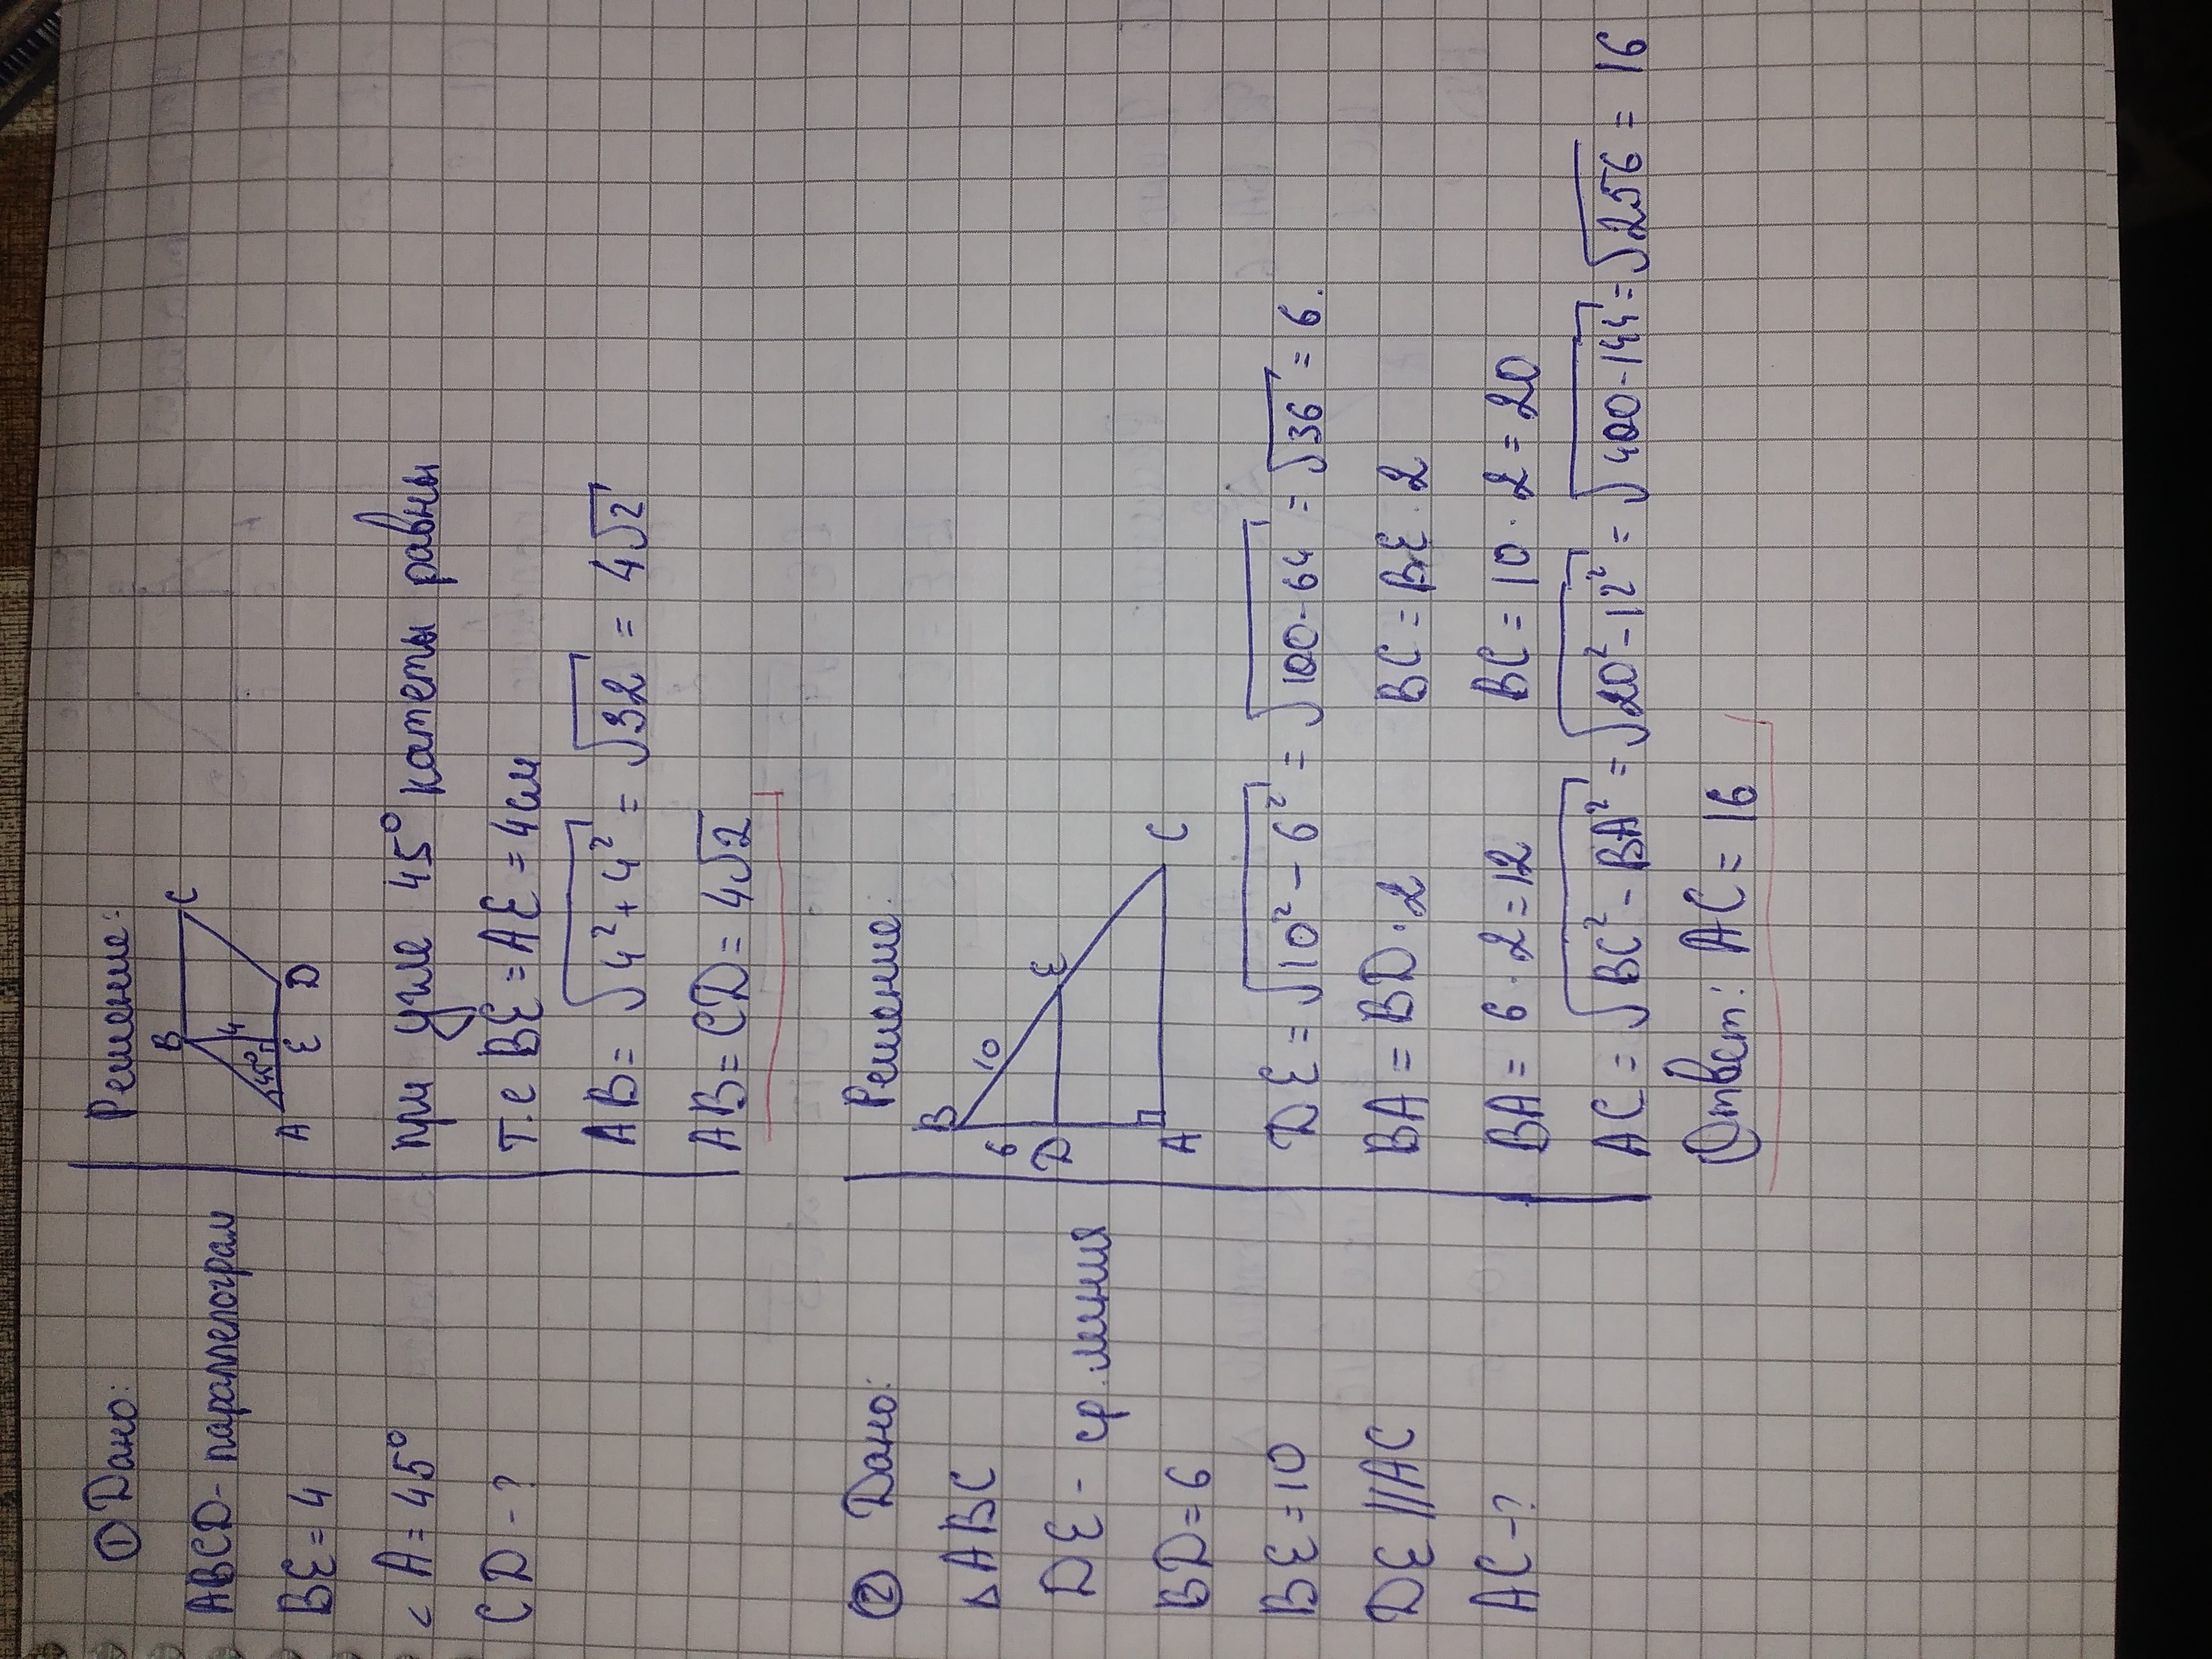 ① Дано:
ABCD - параллелограм
BE = 4
< A = 45°
CD - ?
Решение:
B C
4
45°
A E D
при угле 45° катеты равны
т.е BE = AE = 4см
AB = √4² + 4² = √32 = 4√2
AB = CD = 4√2
② Дано:
Δ ABC
DE - ср. линия
BD = 6
BE = 10
DE // AC
AC - ?
Решение:
B
6 10
D E
A C
DE = √10² - 6² = √100 - 64 = √36 = 6.
BA = BD · 2 BC = BE · 2
BA = 6 · 2 = 12 BC = 10 · 2 = 20
AC = √BC² - BA² = √20² - 12² = √400 - 144 = √256 = 16
Ответ: AC = 16